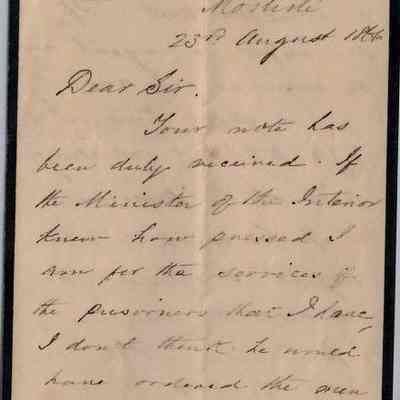 23rd August
Dear Sir.
Your note has
been duly received. If
the Minister of the Interior
knew how pressed I
am for the services of
the prisoners that I have,
I don't think he would
have ordered the men